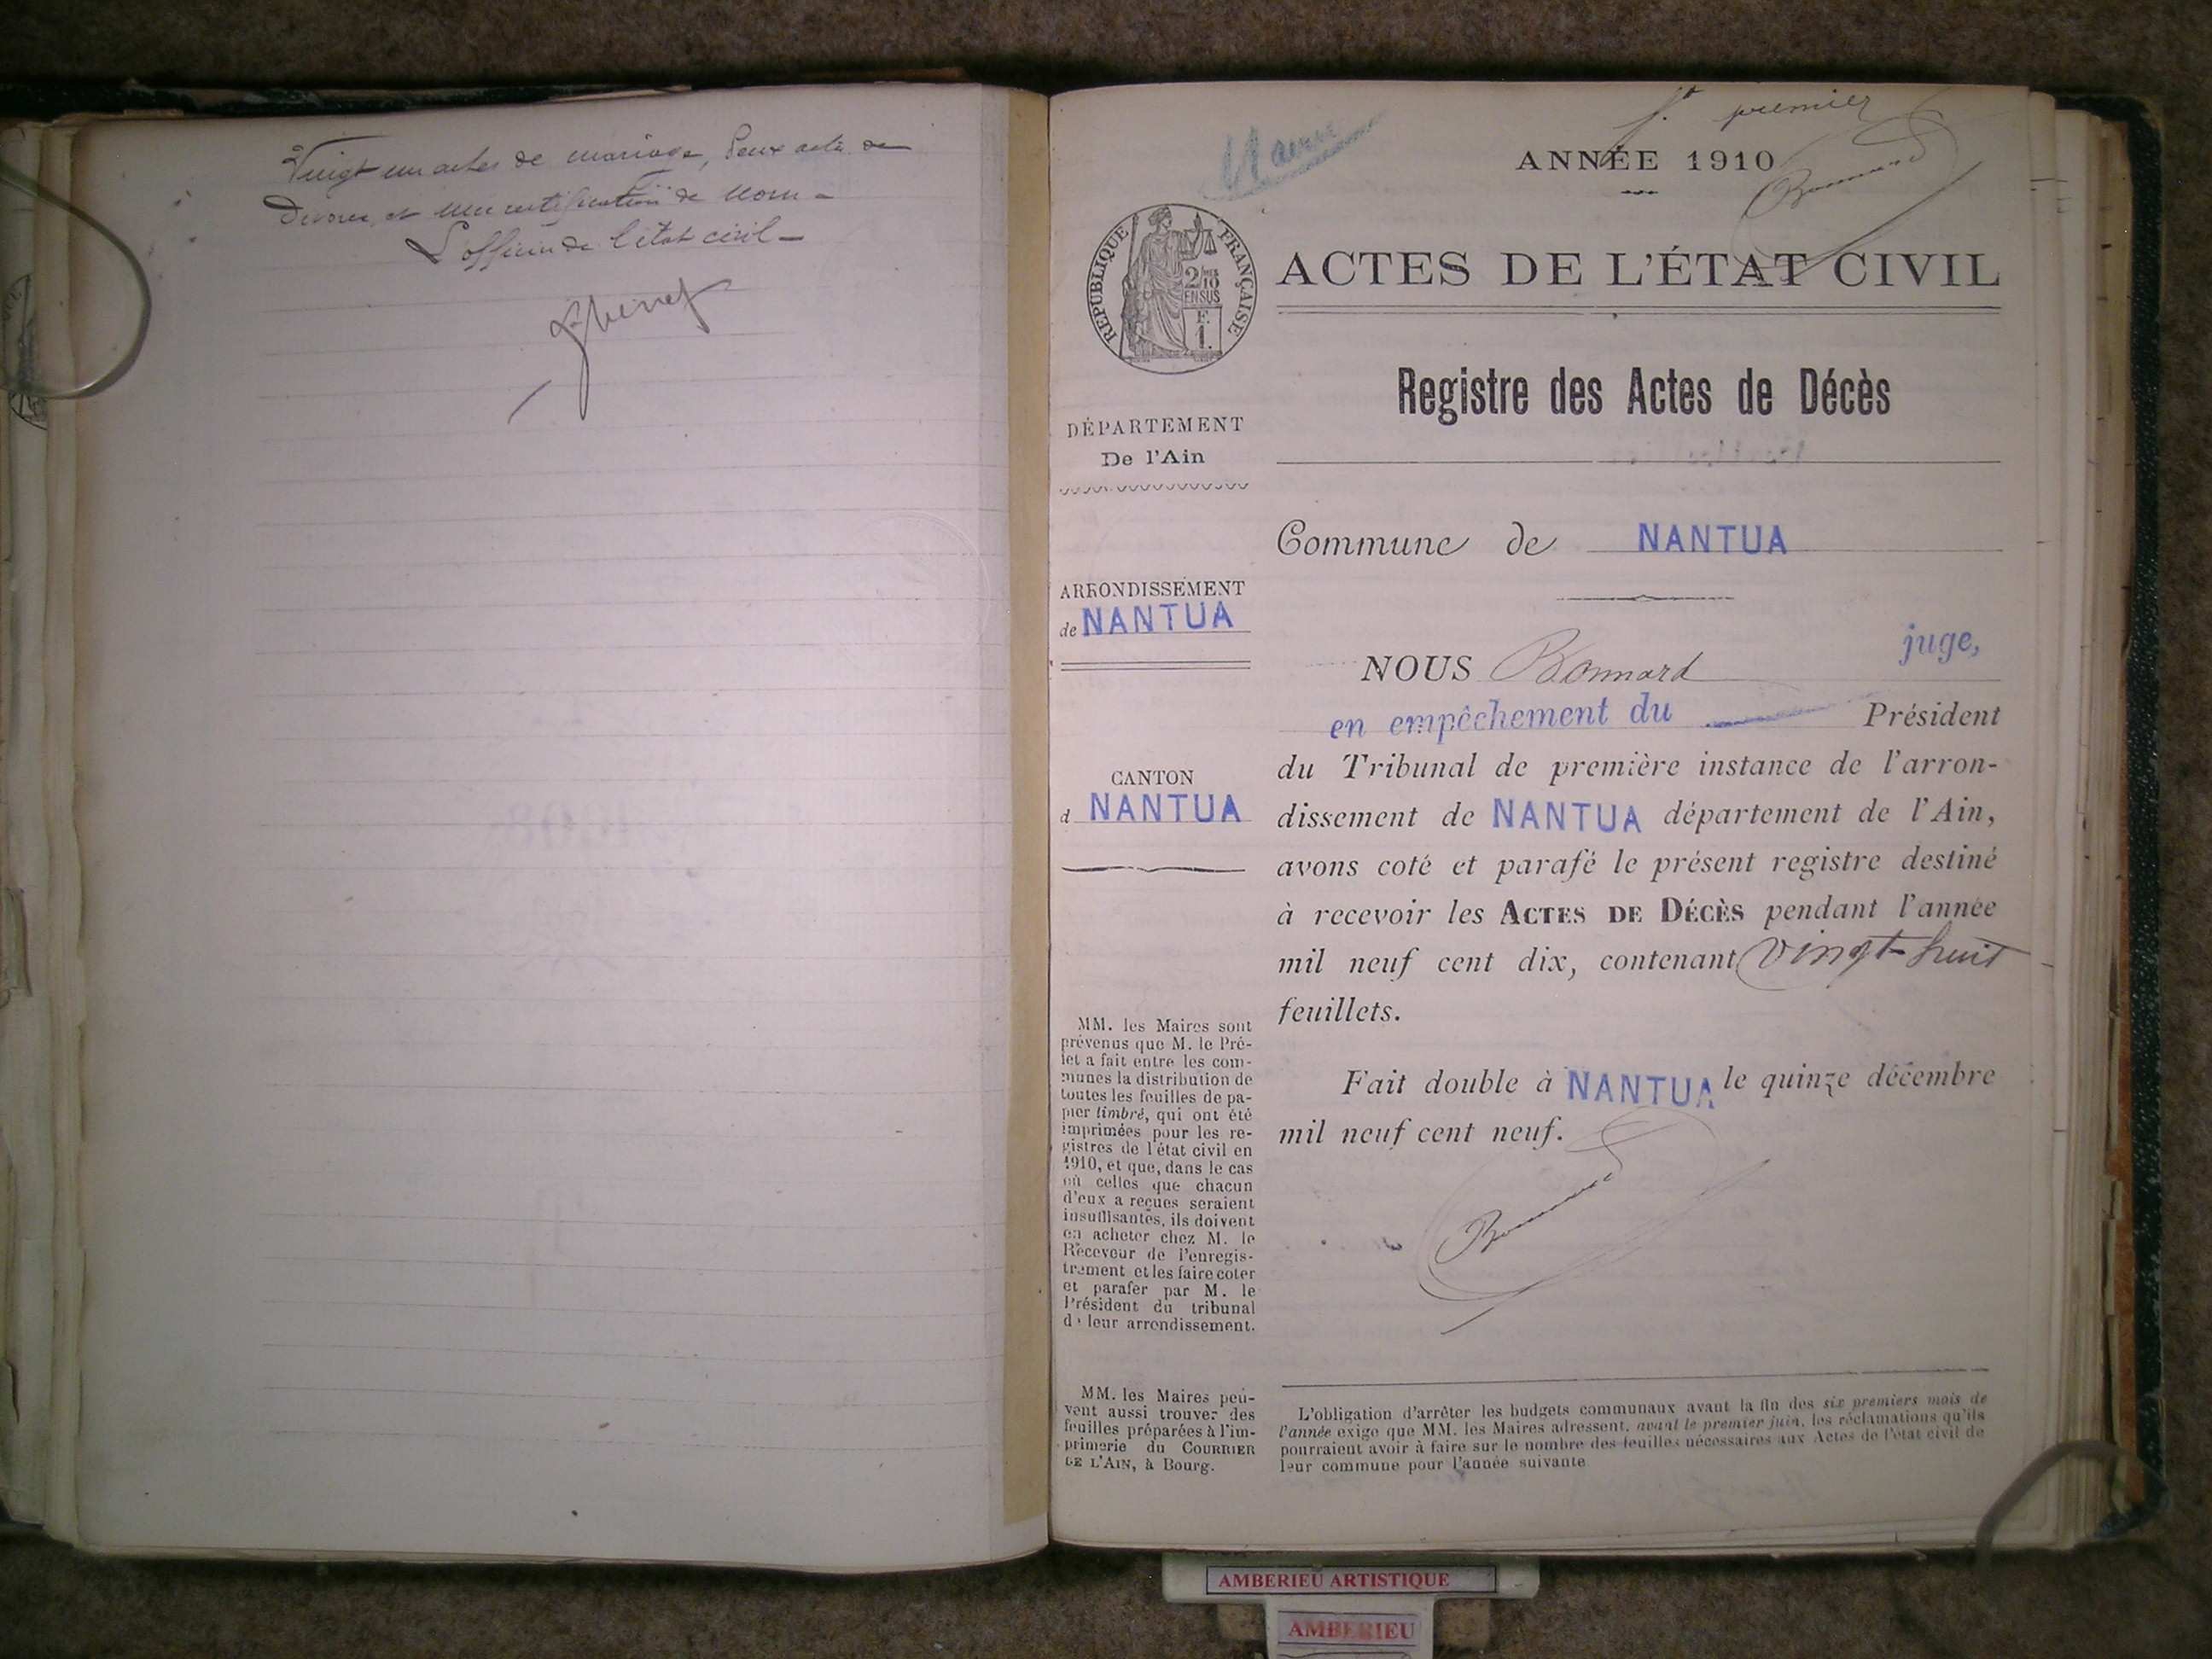 Vingt un actes de mariage, deux acte de
Divorce et une rectification de nom -
L'officier de l'état civil -
f. premier
ANNÉE 1910
ACTES DE L'ÉTAT CIVIL
RÉPUBLIQUE FRANÇAISE
2/10
EN SUS
F.
1.
Registre des Actes de Décès
DÉPARTEMENT
De l'Ain
ARRONDISSEMENT
de NANTUA
CANTON
d NANTUA
MM. les Maires sont
prévenus que M. le Pré-
fet a fait entre les com-
munes la distribution de
toutes les feuilles de pa-
pier timbré, qui ont été
imprimées pour les re-
gistres de l'état civil en
1910, et que, dans le cas
où celles que chacun
d'eux a reçues seraient
insuffisantes, ils doivent
en acheter chez M. le
Receveur de l'enregis-
trement et les faire coter
et parafer par M. le
Président du tribunal
de leur arrondissement.
MM. les Maires peu-
vent aussi trouver des
feuilles préparées à l'im-
primerie du COURRIER
DE L'AIN, à Bourg.
Commune de NANTUA
NOUS Bonnard juge,
en empêchement du Président
du Tribunal de première instance de l'arron-
dissement de NANTUA département de l'Ain,
avons coté et parafé le présent registre destiné
à recevoir les ACTES DE DÉCÈS pendant l'année
mil neuf cent dix, contenant vingt-huit
feuillets.
Fait double à NANTUA le quinze décembre
mil neuf cent neuf.
Bonnard
L'obligation d'arrêter les budgets communaux avant la fin des six premiers mois de
l'année exige que MM. les Maires adressent, avant le premier juin, les réclamations qu'ils
pourraient avoir à faire sur le nombre des feuilles nécessaires aux Actes de l'état civil de
leur commune pour l'année suivante
AMBERIEU ARTISTIQUE
AMBERIEU